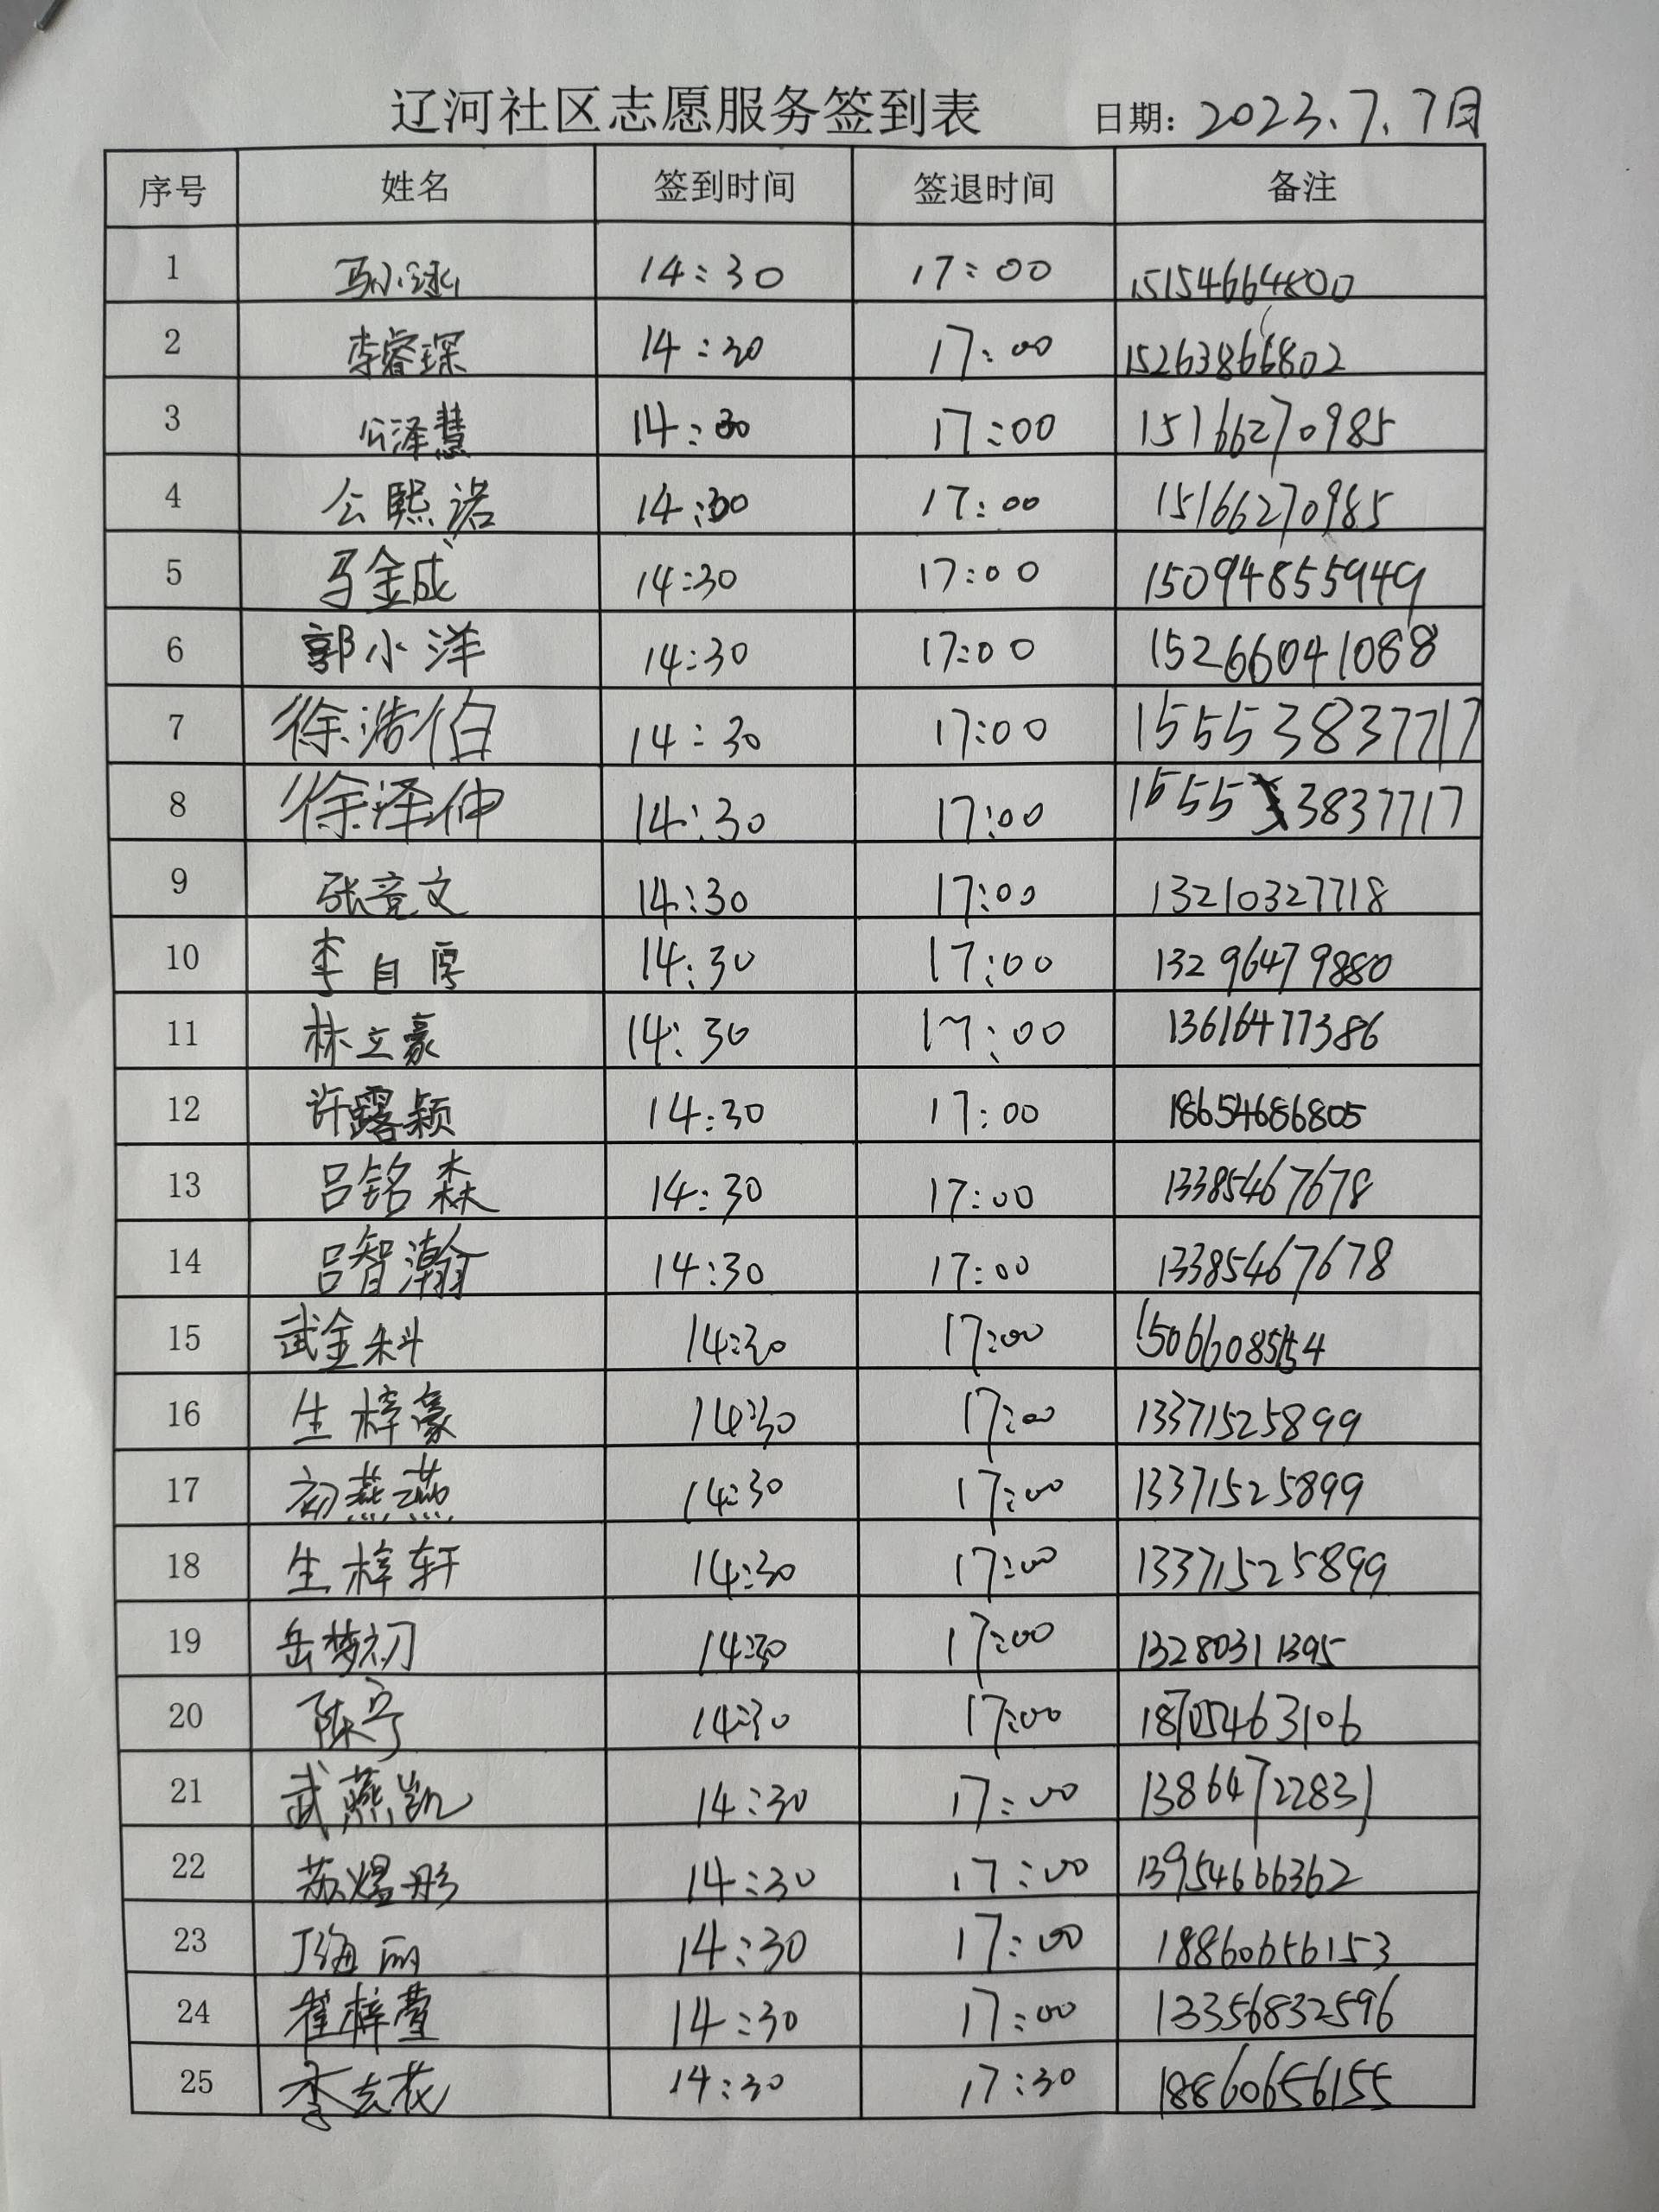 辽河社区志愿服务签到表 日期: 2023.7.7日
序号 姓名 签到时间 签退时间 备注
1 14:30 17:00 15154664800
2 李睿琛 14:30 17:00 15263866802
3 公泽慧 14:30 17:00 15166270985
4 公熙诺 14:30 17:00 15166270985
5 马金成 14:30 17:00 15094855949
6 郭小洋 14:30 17:00 15266041088
7 徐浩伯 14:30 17:00 15553837717
8 徐泽仲 14:30 17:00 15553837717
9 张竞文 14:30 17:00 13210327718
10 李自厚 14:30 17:00 13296479880
11 林立豪 14:30 17:00 13616477386
12 许露颖 14:30 17:00 18654686805
13 吕铭森 14:30 17:00 13385467678
14 吕智瀚 14:30 17:00 13385467678
15 武金科 14:30 17:00 15066085154
16 生梓豪 14:30 17:00 13371525899
17 初燕燕 14:30 17:00 13371525899
18 生梓轩 14:30 17:00 13371525899
19 岳梦初 14:30 17:00 13280311395
20 陈宁 14:30 17:00 18705463106
21 武燕凯 14:30 17:00 13864722831
22 苏煜彤 14:30 17:00 13954666362
23 丁海丽 14:30 17:00 18860656153
24 崔梓萱 14:30 17:00 13356832596
25 14:30 17:30 18860656155